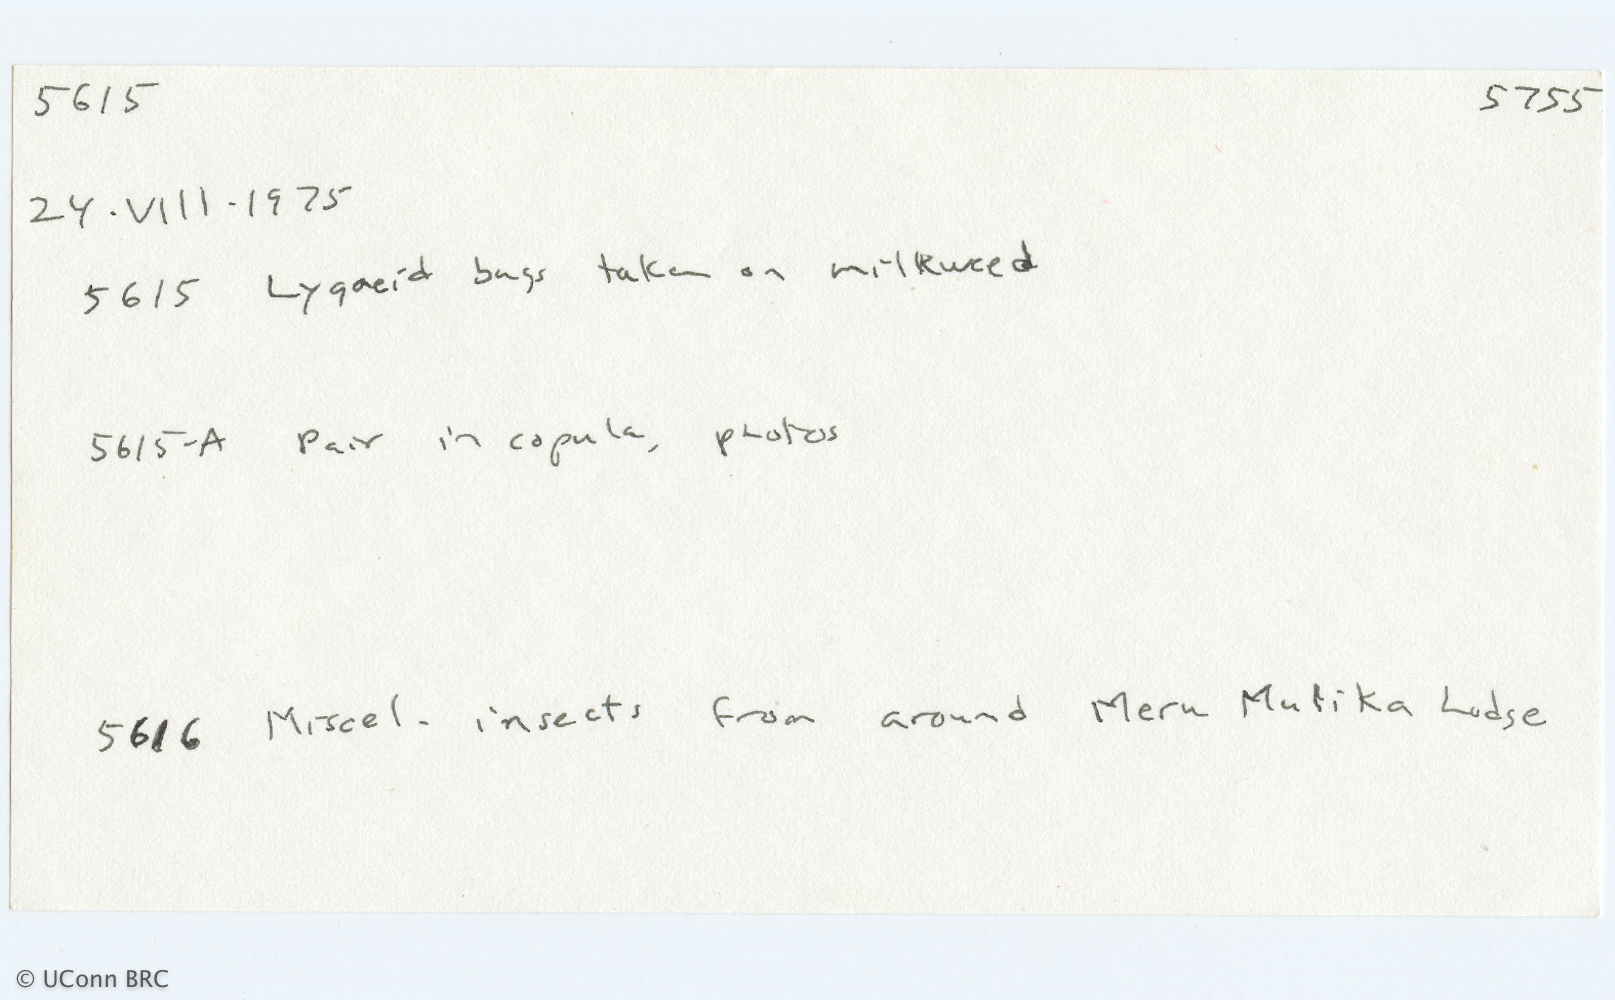 5615 5755
24.VIII.1975
5615 Lygaeid bugs taken on milkweed
5615-A Pair in copula, photos
5616 Miscel. insects from around Meru Mulika Lodge
© UConn BRC